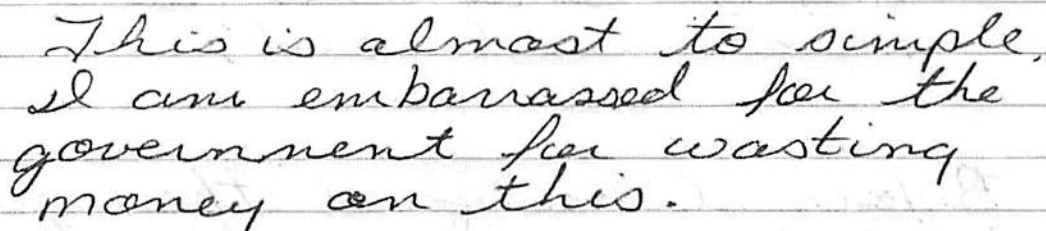 This is almost to simple.
I am embarrassed for the
government for wasting
money on this.